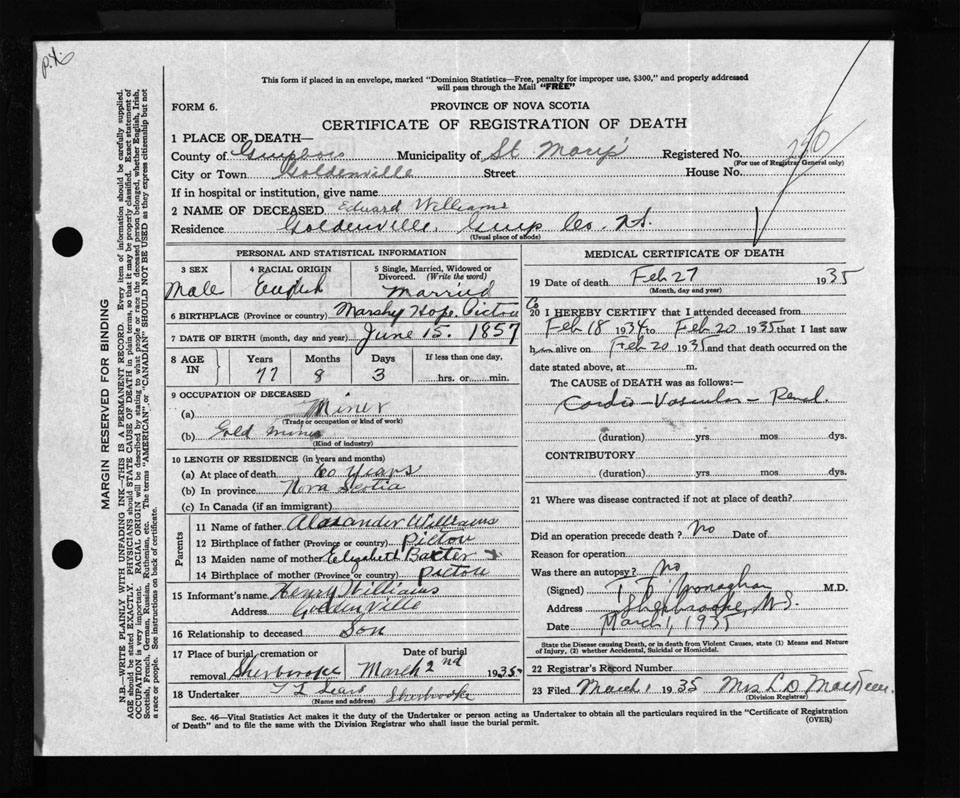 This form if placed in an envelope, marked "Dominion Statistics—Free, penalty for improper use, $300," and properly addressed
will pass through the Mail "FREE"
FORM 6.
PROVINCE OF NOVA SCOTIA
CERTIFICATE OF REGISTRATION OF DEATH
1 PLACE OF DEATH—
County of Municipality of St Mary's Registered No.
(For use of Registrar General only)
City or Town Goldenville Street House No.
If in hospital or institution, give name
2 NAME OF DECEASED Edward Williams
Residence Goldenville, Guys Co. N.S.
(Usual place of abode)
PERSONAL AND STATISTICAL INFORMATION
3 SEX Male
4 RACIAL ORIGIN English
5 Single, Married, Widowed or Divorced. (Write the word) Married
6 BIRTHPLACE (Province or country) Marshy Hope. Pictou Co
7 DATE OF BIRTH (month, day and year) June 15. 1857
8 AGE IN Years 77 Months 8 Days 3 If less than one day, hrs. or min.
9 OCCUPATION OF DECEASED
(a) Miner
(Trade or occupation or kind of work)
(b) Gold mine
(Kind of industry)
10 LENGTH OF RESIDENCE (in years and months)
(a) At place of death 60 years
(b) In province Nova Scotia
(c) In Canada (if an immigrant)
Parents
11 Name of father Alaxander Williams
12 Birthplace of father (Province or country) Pictou
13 Maiden name of mother Elizabeth Baxter
14 Birthplace of mother (Province or country) Pictou
15 Informant's name Henry Williams
Address Goldenville
16 Relationship to deceased Son
17 Place of burial, cremation or removal Sherbrooke
Date of burial March 2nd 1935
18 Undertaker Sherbrooke
(Name and address)
MEDICAL CERTIFICATE OF DEATH
19 Date of death Feb 27 1935
(Month, day and year)
20 I HEREBY CERTIFY that I attended deceased from
Feb 18 1934 to Feb 20 1935 that I last saw
him alive on Feb 20 1935 and that death occurred on the
date stated above, at m.
The CAUSE of DEATH was as follows:—
Cardio-Vascular-Renal.
(duration) yrs. mos. dys.
CONTRIBUTORY
(duration) yrs. mos. dys.
21 Where was disease contracted if not at place of death?
Did an operation precede death? No Date of
Reason for operation
Was there an autopsy? No
(Signed) Monaghan M.D.
Address Sherbrooke, N.S.
Date March 1, 1935
State the Disease causing Death, or in death from Violent Causes, state (1) Means and Nature
of Injury, (2) whether Accidental, Suicidal or Homicidal.
22 Registrar's Record Number
23 Filed March 1 1935 Mrs
(Division Registrar)
Sec. 46—Vital Statistics Act makes it the duty of the Undertaker or person acting as Undertaker to obtain all the particulars required in the "Certificate of Registration
of Death" and to file the same with the Division Registrar who shall issue the burial permit.
(OVER)
MARGIN RESERVED FOR BINDING
N.B.—WRITE PLAINLY WITH UNFADING INK—THIS IS A PERMANENT RECORD. Every item of information should be carefully supplied.
AGE should be stated EXACTLY. PHYSICIANS should STATE CAUSE OF DEATH in plain terms, so that it may be properly classified. Exact statement of
OCCUPATION is very important. RACIAL ORIGIN will be described by stating to what people or race the deceased person belonged, whether English, Irish,
Scottish, French, German, Russian, Ruthenian, etc. The terms "AMERICAN" or "CANADIAN" SHOULD NOT BE USED as they express citizenship but not
a race or people. See instructions on back of certificate.